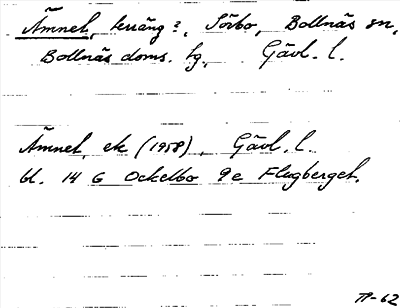 Ämnet, terräng?, Sörbo, Bollnäs sn,
Bollnäs doms. tg, Gävl. l.
Ämnet, ek (1958), Gävl. l.
bl. 14 G Ockelbo 9e Flugberget.
TP-62